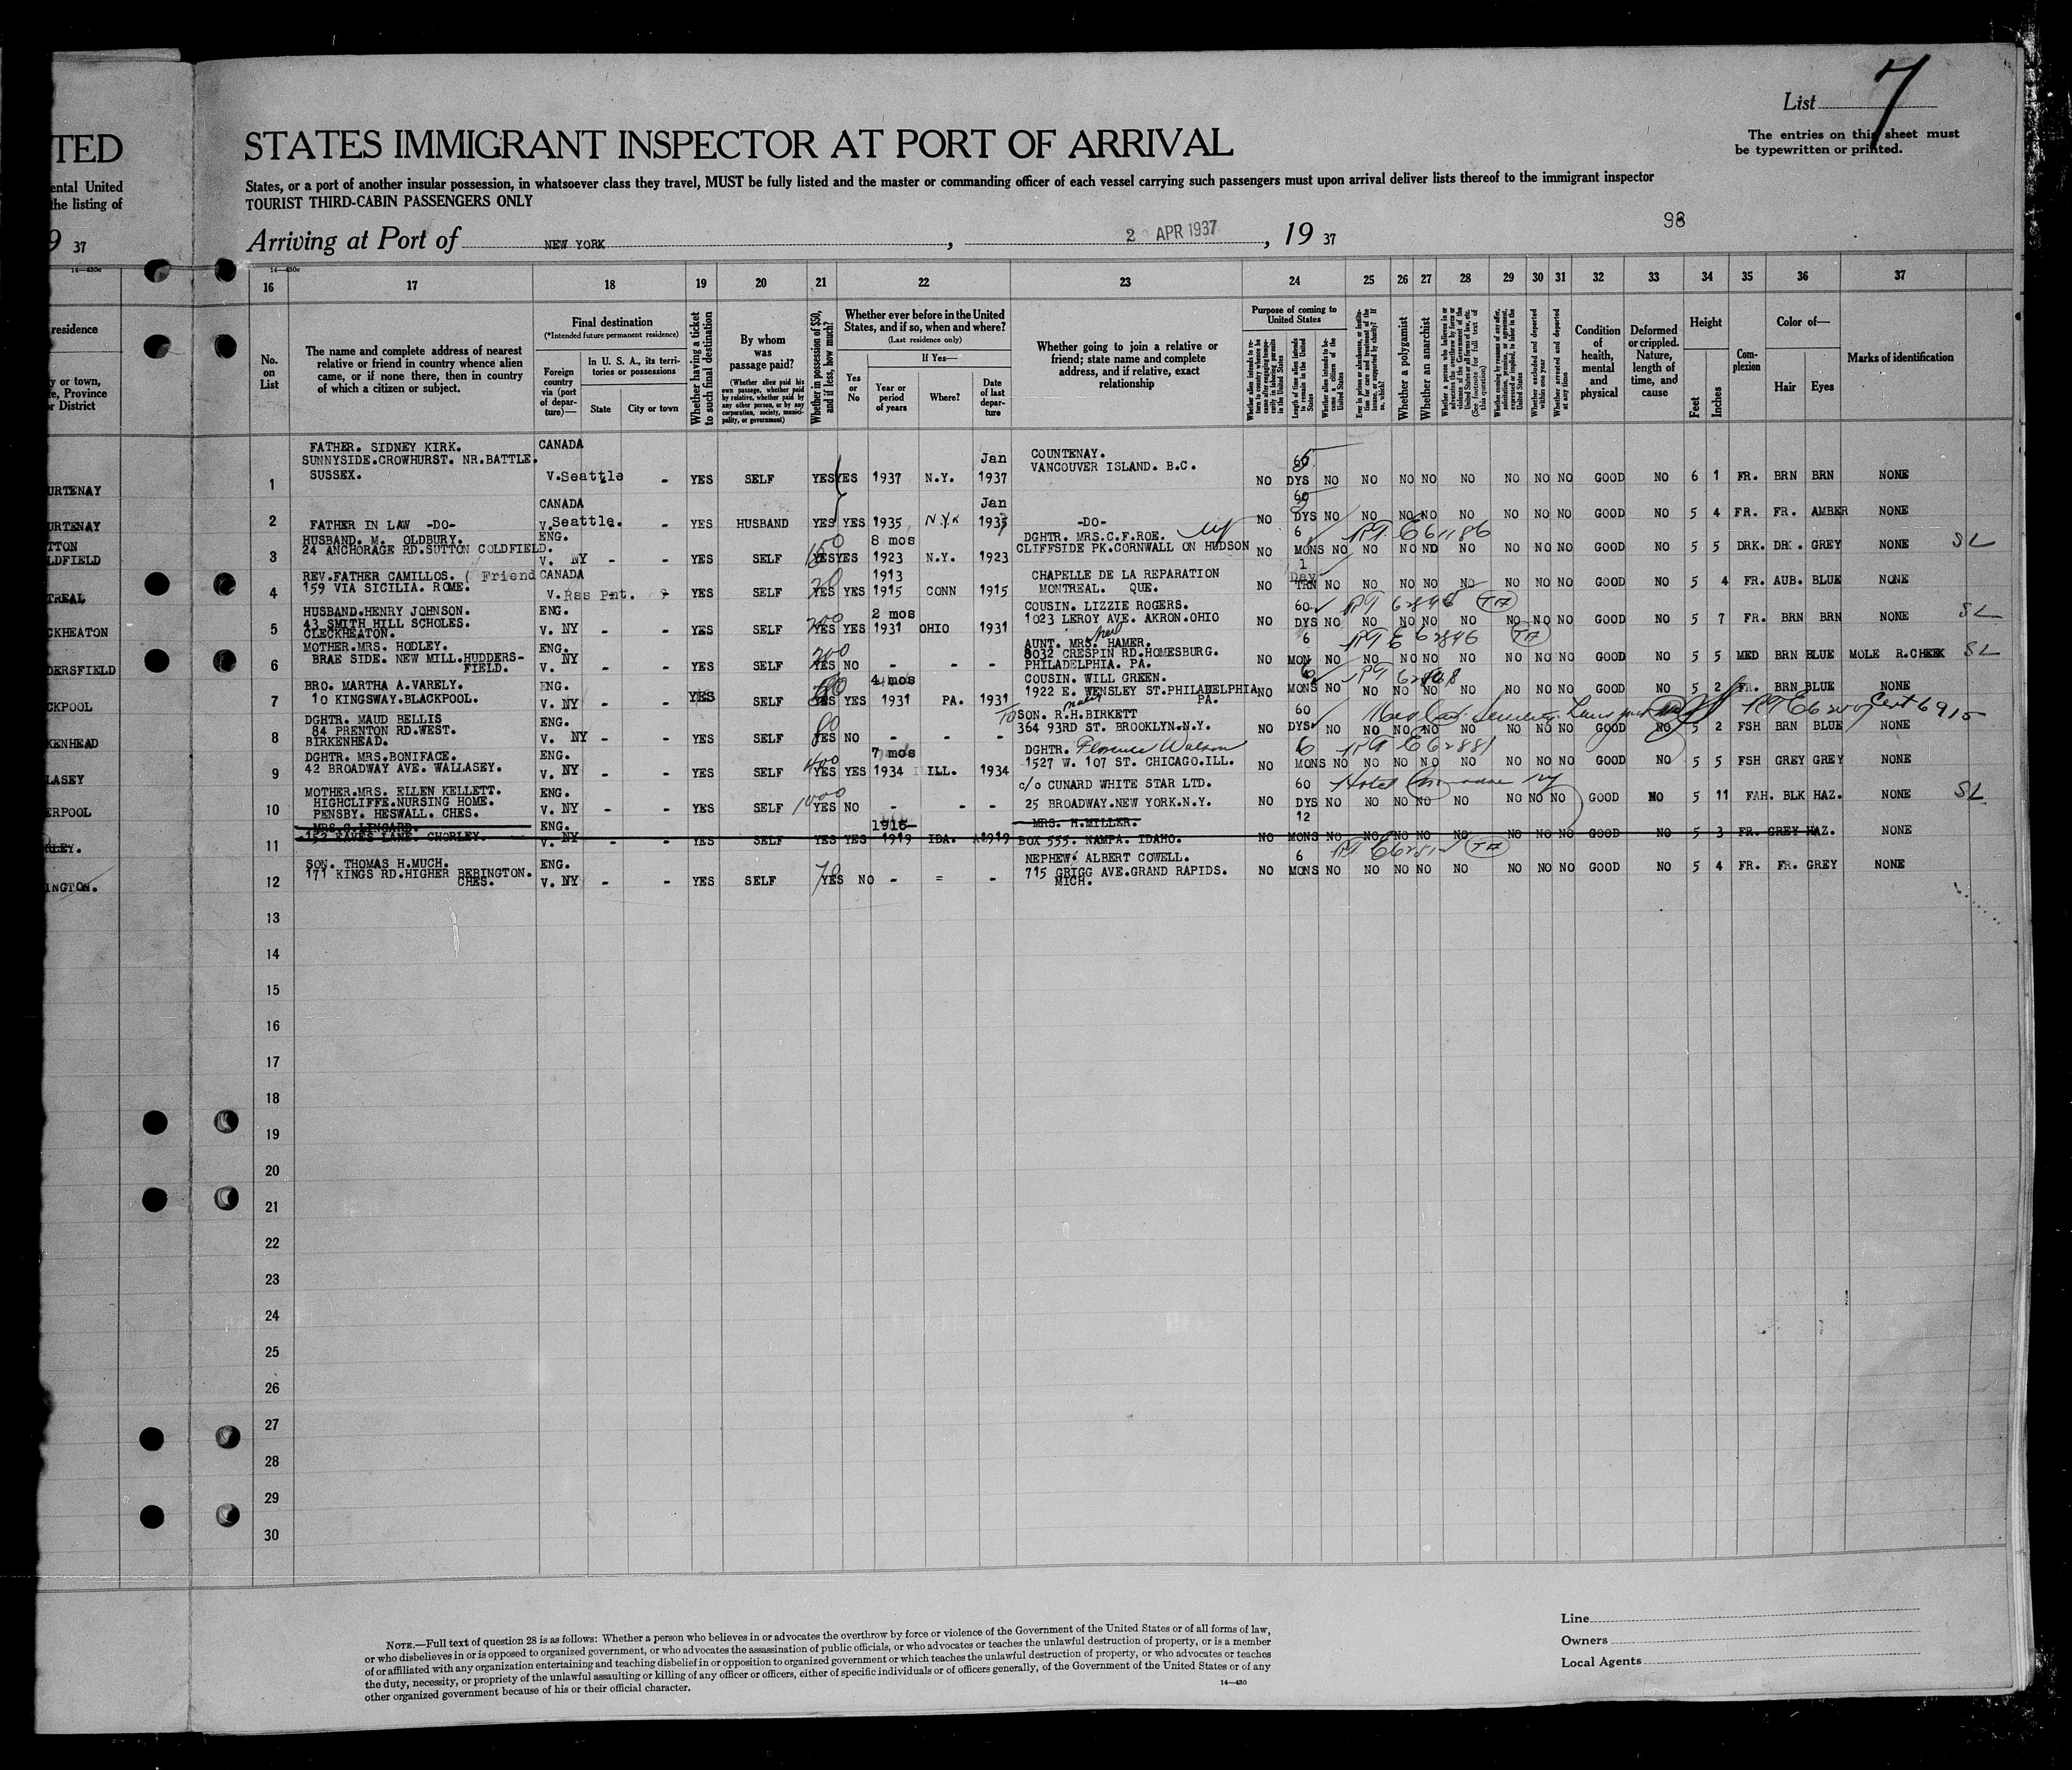 List 7
The entries on this sheet must
be typewritten or printed.
TED
STATES IMMIGRANT INSPECTOR AT PORT OF ARRIVAL
ental United
the listing of
States, or a port of another insular possession, in whatsoever class they travel, MUST be fully listed and the master or commanding officer of each vessel carrying such passengers must upon arrival deliver lists thereof to the immigrant inspector
TOURIST THIRD-CABIN PASSENGERS ONLY
98
9 37
Arriving at Port of NEW YORK, 2 APR 1937, 19 37
14—430c
14—430c
16 17 18 19 20 21 22 23 24 25 26 27 28 29 30 31 32 33 34 35 36 37
residence
y or town,
te, Province
or District
No. on List
The name and complete address of nearest relative or friend in country whence alien came, or if none there, then in country of which a citizen or subject.
Final destination
(*Intended future permanent residence)
Foreign country via (port of departure)—
In U. S. A., its territories or possessions
State
City or town
Whether having a ticket to such final destination
By whom was passage paid?
(Whether alien paid his own passage, whether paid by relative, whether paid by any other person, or by any corporation, society, municipality, or government)
Whether in possession of $50, and if less, how much?
Whether ever before in the United States, and if so, when and where?
(Last residence only)
Yes or No
If Yes—
Year or period of years
Where?
Date of last departure
Whether going to join a relative or friend; state name and complete address, and if relative, exact relationship
Purpose of coming to United States
Length of time alien intends to remain in the United States
Whether alien intends to become a citizen of the United States
Whether a polygamist
Whether an anarchist
Whether excluded and deported within one year
Whether arrested and deported at any time
Condition of health, mental and physical
Deformed or crippled. Nature, length of time, and cause
Height
Feet
Inches
Complexion
Color of—
Hair
Eyes
Marks of identification
URTENAY
1 FATHER. SIDNEY KIRK. SUNNYSIDE.CROWHURST. NR.BATTLE. SUSSEX. CANADA V.Seattle - YES SELF YES YES 1937 N.Y. Jan 1937 COUNTENAY. VANCOUVER ISLAND. B.C. NO DYS NO NO NO NO NO NO NO NO GOOD NO 6 1 FR. BRN BRN NONE
URTENAY
2 FATHER IN LAW -DO- CANADA V.Seattle. - YES HUSBAND YES YES 1935 N.Y. Jan 1935 -DO- NO 60 DYS NO NO NO NO NO NO NO NO GOOD NO 5 4 FR. FR. AMBER NONE
TTON
LDFIELD
3 HUSBAND. M. OLDBURY. 24 ANCHORAGE RD.SUTTON COLDFIELD. ENG. V. NY - - YES SELF 150 YES YES 8 mos 1923 N.Y. 1923 DGHTR. MRS.C.F.ROE. CLIFFSIDE PK.CORNWALL ON HUDSON NY NO 6 MONS NO NO NO NO NO NO NO NO GOOD NO 5 5 DRK. DRK. GREY NONE SL
RT. E61186
TREAL
4 REV.FATHER CAMILLOS. ( Friend 159 VIA SICILIA. ROME. CANADA V.Rss Pnt. YES SELF 20 YES YES 1913 1915 CONN 1915 CHAPELLE DE LA REPARATION MONTREAL. QUE. NO 1 Day TRN NO NO NO NO NO NO NO NO GOOD NO 5 4 FR. AUB. BLUE NONE
CKHEATON
5 HUSBAND.HENRY JOHNSON. 43 SMITH HILL SCHOLES. CLECKHEATON. ENG. V. NY - - YES SELF 200 YES YES 2 mos 1931 OHIO 1931 COUSIN. LIZZIE ROGERS. 1023 LEROY AVE. AKRON.OHIO NO 60 DYS NO NO NO NO NO NO NO NO GOOD NO 5 7 FR. BRN BRN NONE SL
DERSFIELD
6 MOTHER.MRS. HODLEY. BRAE SIDE. NEW MILL.HUDDERS-FIELD. ENG. V. NY - - YES SELF 200 YES NO - - - AUNT. MRS. HAMER. 8032 CRESPIN RD.HOMESBURG. PHILADELPHIA. PA. NO 6 MON NO NO NO NO NO NO NO NO GOOD NO 5 5 MED BRN BLUE MOLE R.CHEEK SL
RT E 62846
CKPOOL
7 BRO. MARTHA A.VARELY. 10 KINGSWAY.BLACKPOOL. ENG. V. NY - - YES SELF YES YES 4 mos 1931 PA. 1931 COUSIN. WILL GREEN. 1922 E. WENSLEY ST.PHILADELPHIA PA. NO 6 MONS NO NO NO NO NO NO NO NO GOOD NO 5 2 FR. BRN BLUE NONE
KENHEAD
8 DGHTR. MAUD BELLIS 84 PRENTON RD.WEST. BIRKENHEAD. ENG. V. NY - - YES SELF 80 YES NO - - - To SON. R.H.BIRKETT 364 93RD ST. BROOKLYN.N.Y. NO 60 DYS NO NO NO NO NO NO NO NO GOOD NO 5 2 FSH BRN BLUE NONE
Cert 6915
LASEY
9 DGHTR. MRS.BONIFACE. 42 BROADWAY AVE. WALLASEY. ENG. V. NY - - YES SELF 400 YES YES 7 mos 1934 ILL. 1934 DGHTR. Florence Watson 1527 W. 107 ST. CHICAGO.ILL. NO 6 MONS NO NO NO NO NO NO NO NO GOOD NO 5 5 FSH GREY GREY NONE
RT E62881
ERPOOL
10 MOTHER.MRS. ELLEN KELLETT. HIGHCLIFFE.NURSING HOME. PENSBY. HESWALL. CHES. ENG. V. NY - - YES SELF 1000 YES NO - - - c/o CUNARD WHITE STAR LTD. 25 BROADWAY.NEW YORK.N.Y. NO 60 DYS NO NO NO NO NO NO NO NO GOOD NO 5 11 FAH. BLK HAZ. NONE SL
Hotel Commodore NY
RLEY.
11 MRS.G.LINGARD. 152 EAVES LANE. CHORLEY. ENG. V. NY - - YES SELF YES YES 1916- 1919 IDA. 1919 MRS. H.MILLER. BOX 555. NAMPA. IDAHO. NO 12 MONS NO NO NO NO NO NO NO NO GOOD NO 5 3 FR. GREY HAZ. NONE
INGTON.
12 SON. THOMAS H.MUCH. 171 KINGS RD.HIGHER BEBINGTON. CHES. ENG. V. NY - - YES SELF 70 YES NO - = - NEPHEW. ALBERT COWELL. 715 GRIGG AVE.GRAND RAPIDS. MICH. NO 6 MONS NO NO NO NO NO NO NO NO GOOD NO 5 4 FR. FR. GREY NONE
13
14
15
16
17
18
19
20
21
22
23
24
25
26
27
28
29
30
NOTE.—Full text of question 28 is as follows: Whether a person who believes in or advocates the overthrow by force or violence of the Government of the United States or of all forms of law,
or who disbelieves in or is opposed to organized government, or who advocates the assassination of public officials, or who advocates or teaches the unlawful destruction of property, or is a member
of or affiliated with any organization entertaining and teaching disbelief in or opposition to organized government or which teaches the unlawful destruction of property, or who advocates or teaches
the duty, necessity, or propriety of the unlawful assaulting or killing of any officer or officers, either of specific individuals or of officers generally, of the Government of the United States or of any
other organized government because of his or their official character.
14—430
Line
Owners
Local Agents